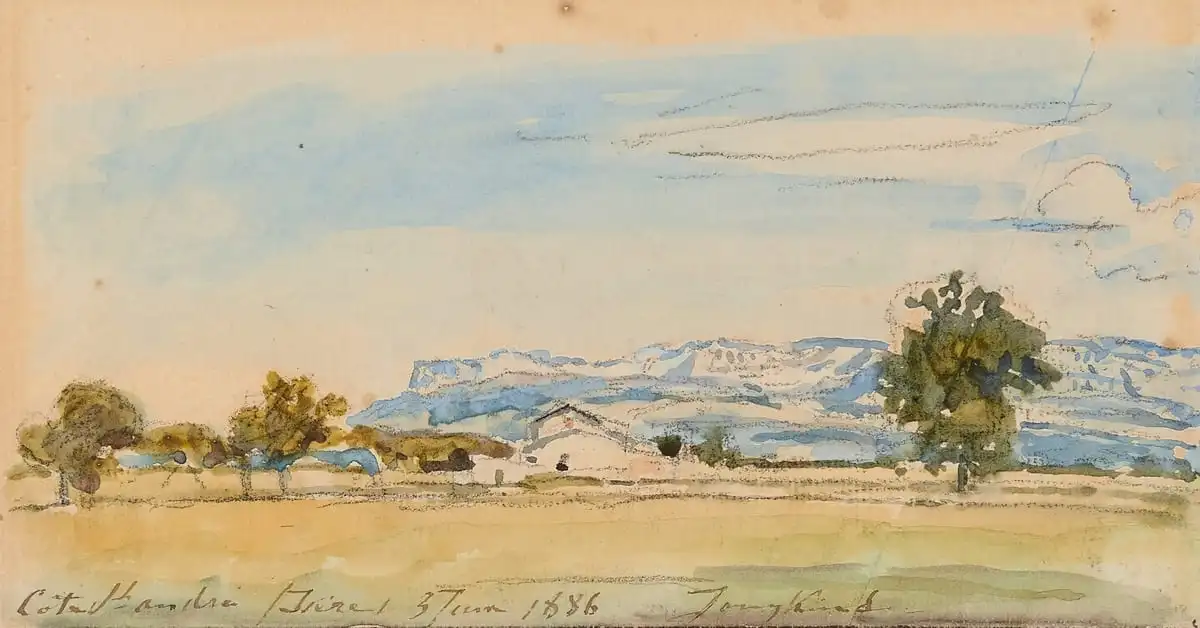 Côte St andré (Isère) 3 Juin 1886 Jongkind